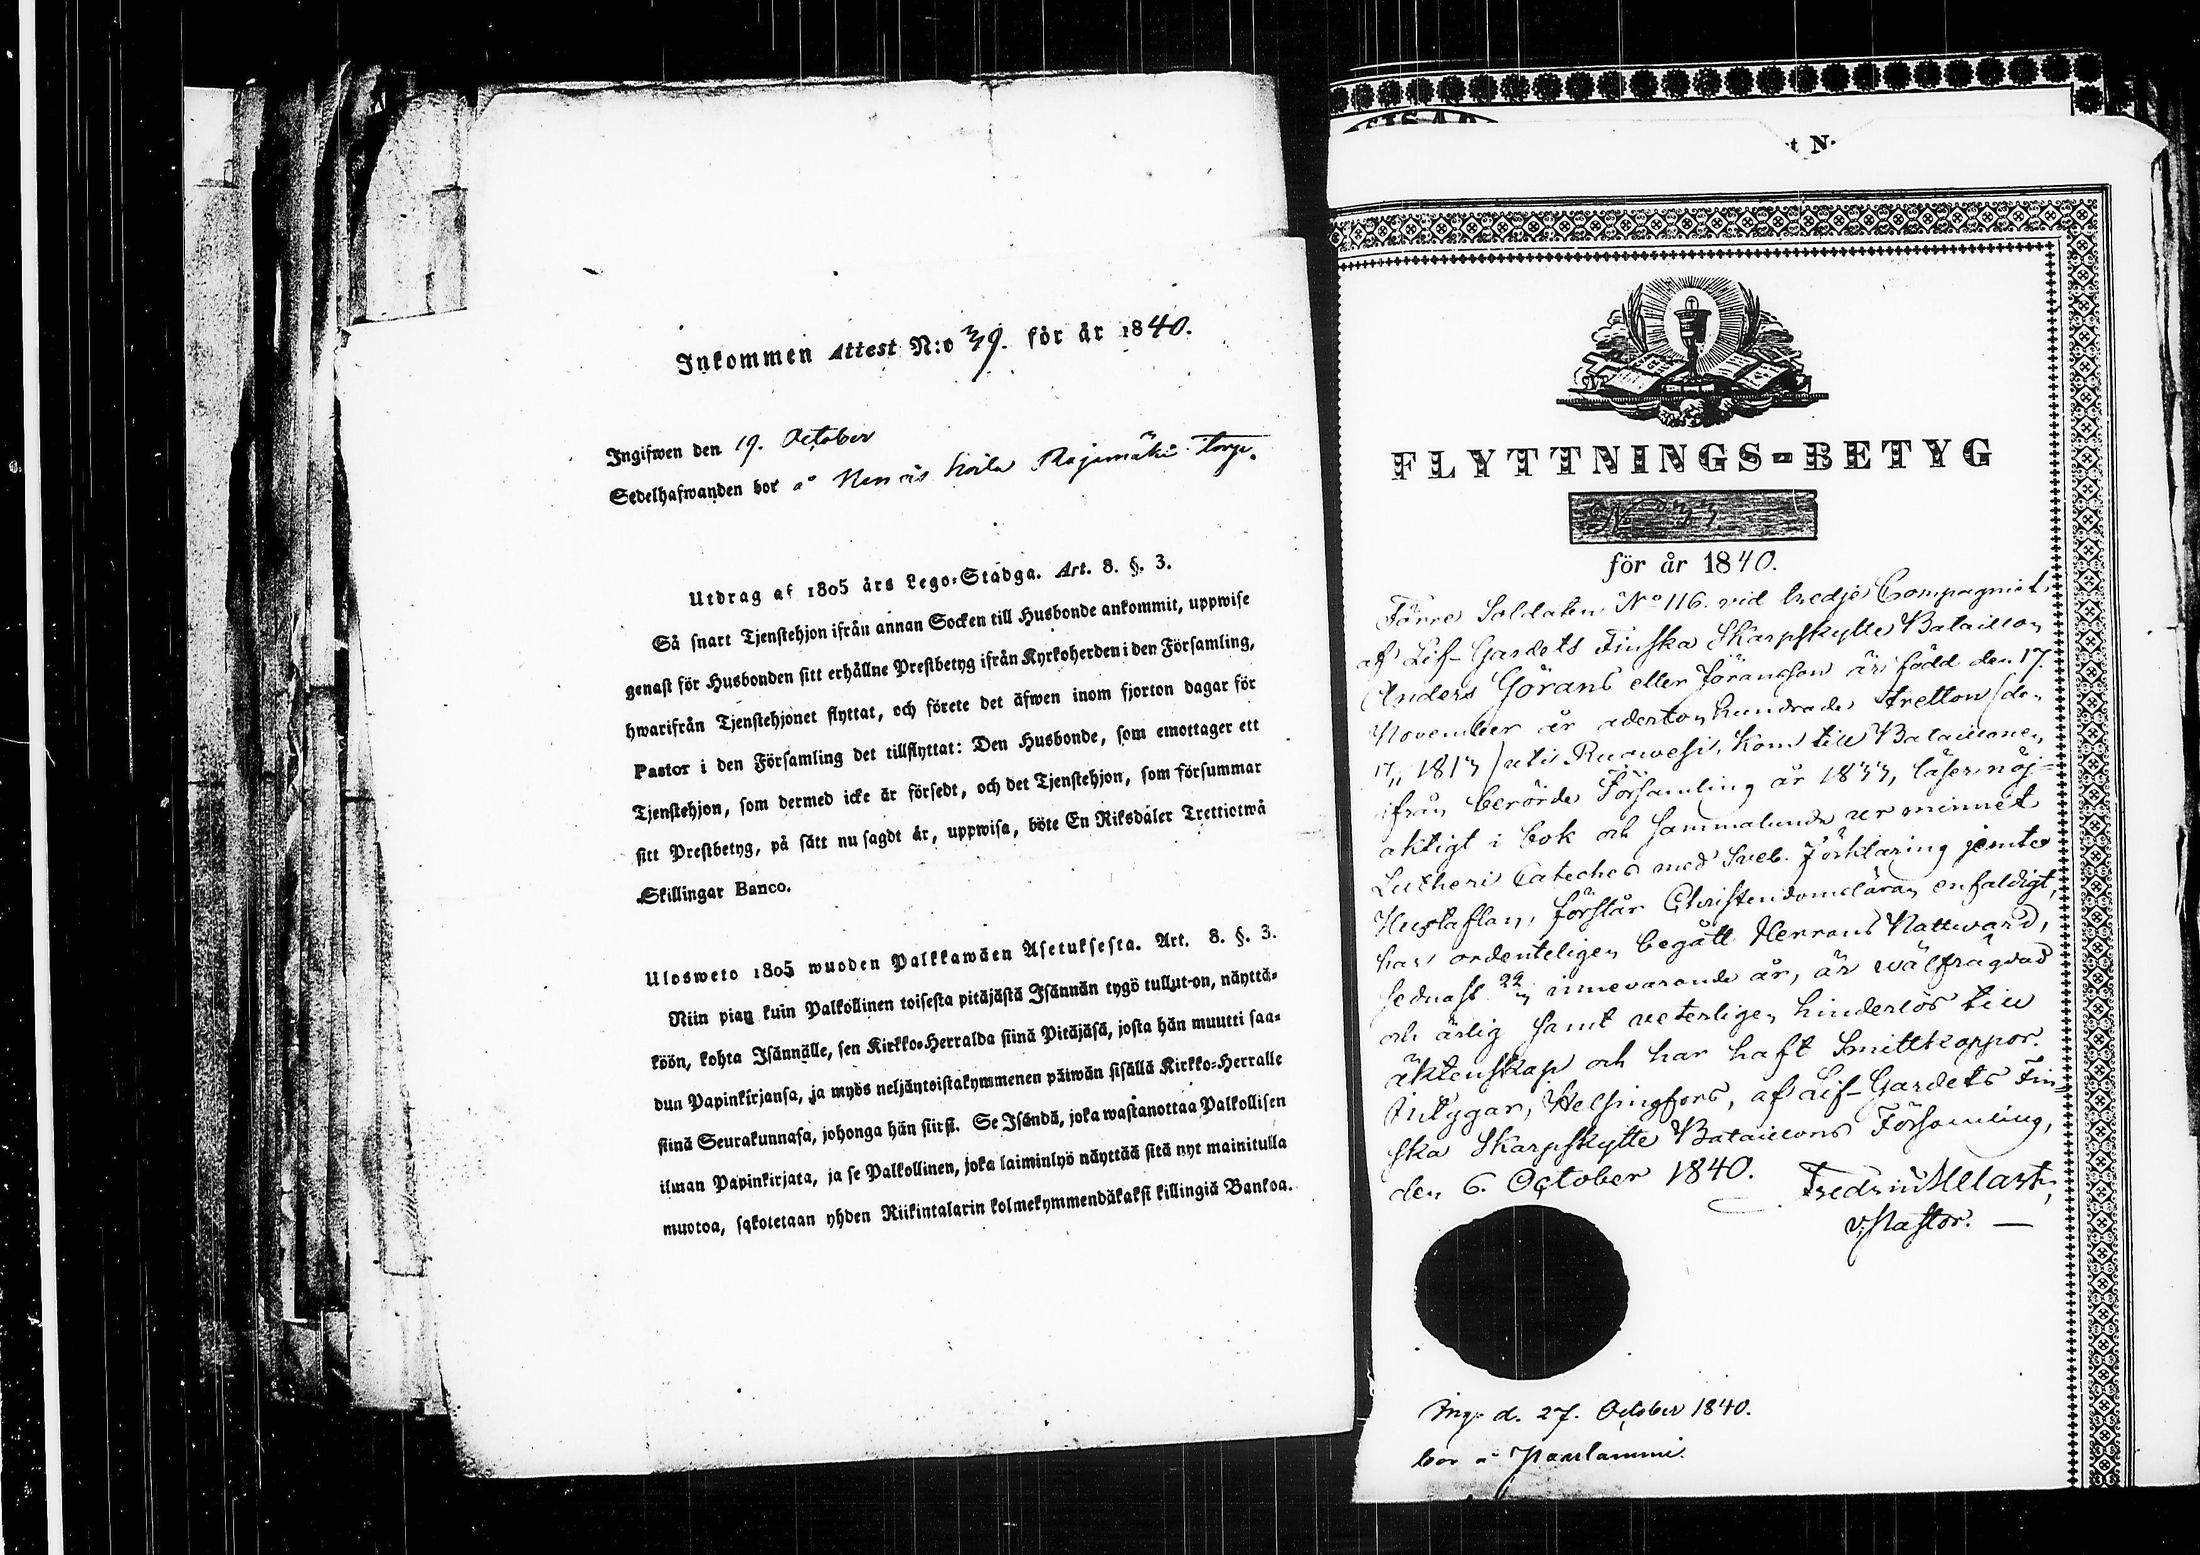 Inkommen Attest N:o 39. för år 1840.
Ingifwen den 19. October
Sedelhafwanden bor å Rajamäki torp.
Utdrag af 1805 års Lego-Stadga. Art. 8. §. 3.
Så snart Tjenstehjon ifrån annan Socken till Husbonde ankommit, uppwise
genast för Husbonden sitt erhållne Prestbetyg ifrån Kyrkoherden i den Församling,
hwarifrån Tjenstehjonet flyttat, och förete det äfwen inom fjorton dagar för
Pastor i den Församling det tillflyttat: Den Husbonde, som emottager ett
Tjenstehjon, som dermed icke är försedt, och det Tjenstehjon, som försummar
sitt Prestbetyg, på sätt nu sagdt är, uppwisa, böte En Riksdaler Trettiotwå
Skillingar Banco.
Ulosweto 1805 wuoden Palkkawäen Asetuksesta. Art. 8. §. 3.
Niin pian kuin Palkollinen toisesta pitäjästä Isännän tygö tullut on, näyttä-
köön, kohta Isännälle, sen Kirkko-Herralda siinä Pitäjäsä, josta hän muutti saa-
dun Papinkirjansa, ja myös neljäntoistakymmenen päiwän sisällä Kirkko-Herralle
siinä Seurakunnasa, johonga hän siirst. Se Isändä, joka wastanottaa Palkollisen
ilman Papinkirjata, ja se Palkollinen, joka laiminlyö näyttää sitä nyt mainitulla
muotoa, sakotetaan yhden Riikintalarin kolmekymmendäkaksi killingiä Bankoa.
t N:
FLYTTNINGS-BETYG
N
för år 1840.
Förre Soldaten No 116. vid tredje Compagniet
af Lif-Gardets Finska Skarpskytte Bataillon
Anders Görans eller Jöransson är född den 17.
November år adertonhundrade tretton (den
17/11 1813) uti Ruowesi, kom till Bataillonen
ifrån berörde Församling år 1833, läser nöj-
aktigt i bok och sammalunda ur minnet
Lutheri Cateches med Sveb. förklaring jemte
Hustaflan, förstår Christendomsläran enfaldigt,
har ordenteligen begått Herrans Nattward,
sednast innevarande år, är wälfrägdad
och ärlig samt veterligen hinderlös till
äktenskap och har haft Smittkoppor.
Intygar, Helsingfors, af Lif-Gardets Fin-
ska Skarpskytte Bataillons Församling,
den 6. October 1840.
v. Pastor.
Ing. d. 27. October 1840.
bor å Paarlammi.